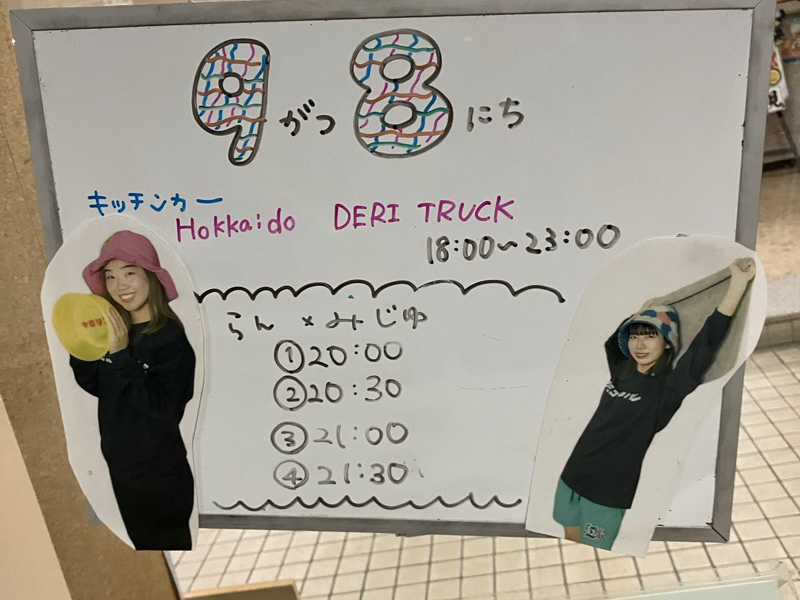 9がつ8にち
キッチンカー
Hokkaido DERI TRUCK
18:00~23:00
らん × みじゅ
①20:00
②20:30
③21:00
④21:30